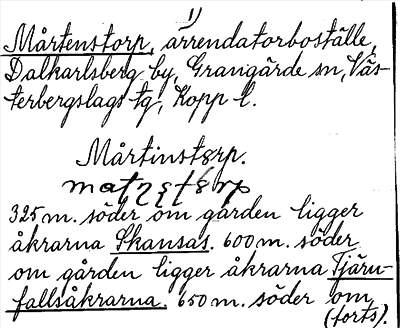 1)
Mårtenstorp, arrendatorboställe,
Dalkarlsberg by, Grangärde sn, Väs-
terbergslags tg, Kopp l.
Mårtinstorp.
325 m. söder om gården ligger
åkrarna Skansas. 600 m. söder
om gården ligger åkrarna Tjäru-
fallsåkrarna. 650 m. söder om
(forts).